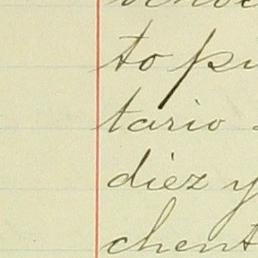 to pu
tario
diez y
chent